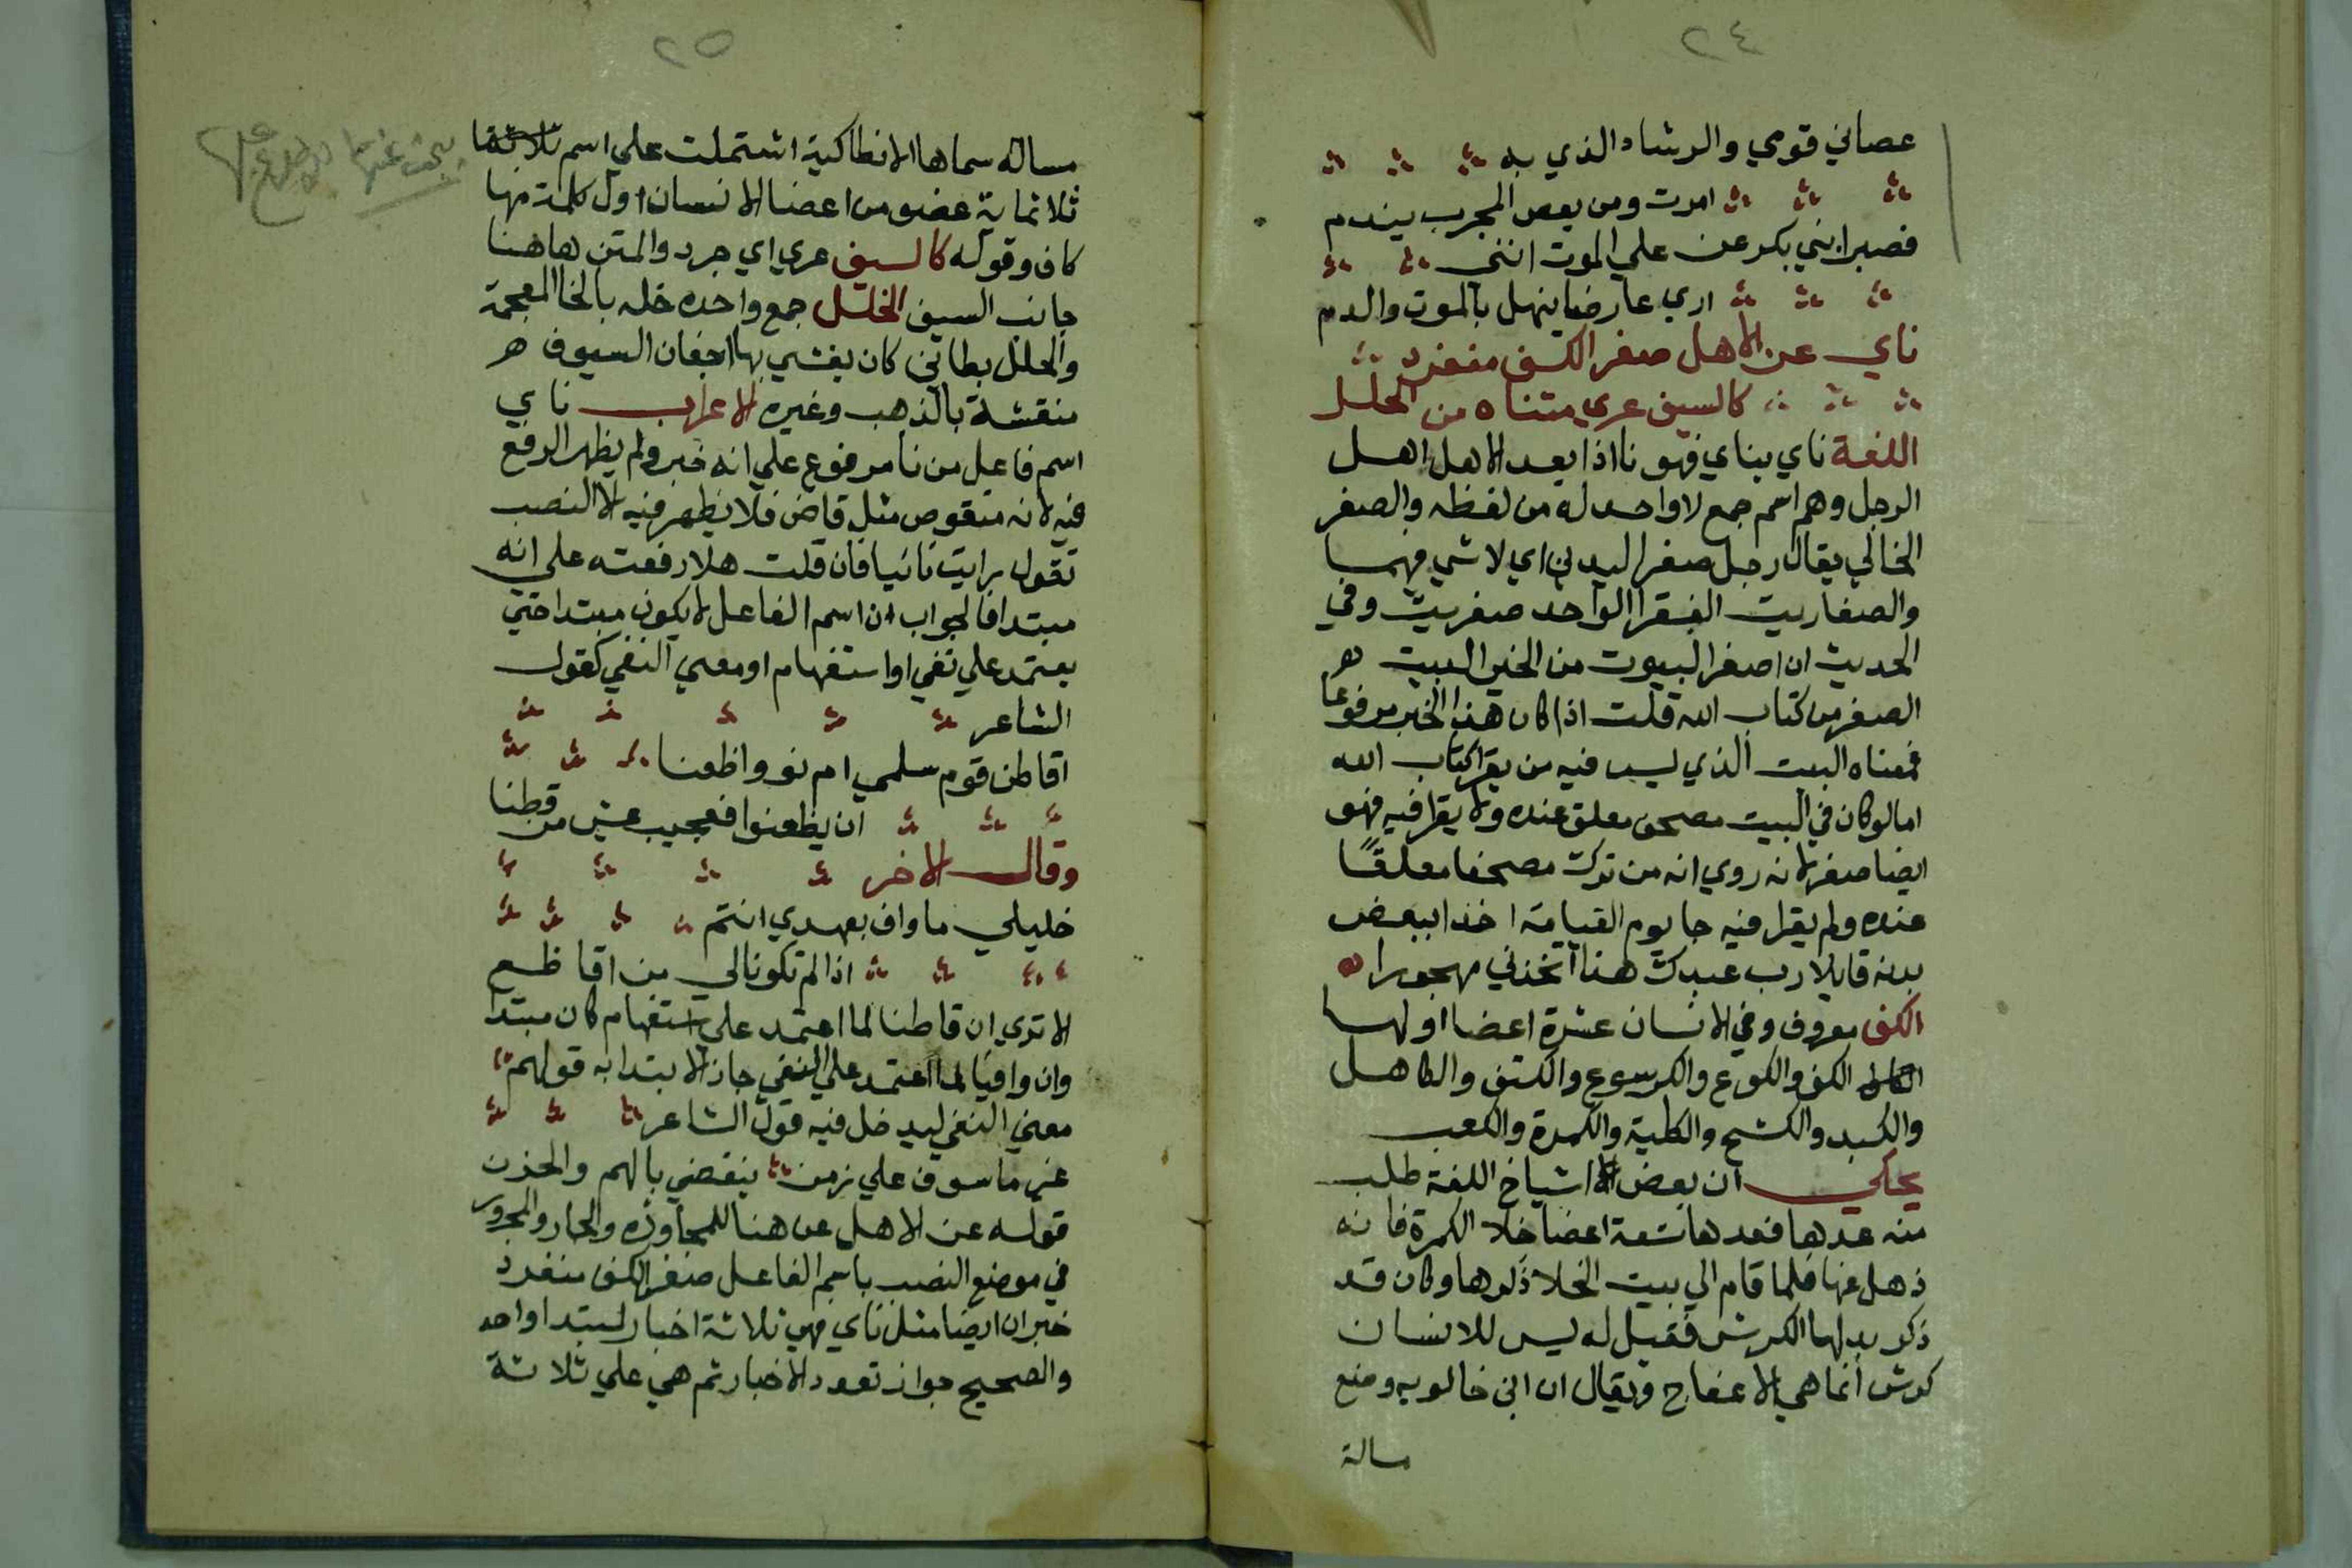 ٢٤
عصاني قومي والرشاد الذي به
امرت ومن يعص المجرب يندم
فصبرا بني بكر على الموت انني
اري عارضا ينهل بالموت والدم
ناي عن الاهل صفر الكف منفرد
كالسيف عري متناه من الخلل
اللغة ناي يناي فهو نا اذا بعد الاهل اهل
الرجل وهم اسم جمع لا واحد له من لفظه والصفر
الخالي يقال رجل صفر اليدين اي لا شي فيهما
والصفاريت الفقرا الواحد صفريت وفي
الحديث ان اصفر البيوت من الخير البيت
الصفر من كتاب الله قلت اذا كان هذا الخبر مرفوعا
فمعناه البيت الذي ليس فيه من يقرا كتاب الله
اما لو كان في البيت مصحف معلق عنده ولا يقرا فيه فهو
ايضا صفر لانه روي انه من ترك مصحفا معلقًا
عنده ولم يقرا فيه جا يوم القيامة اخذا ببعض
بدنه قايلا رب عبدك هذا اتخذني مهجورا
الكف معروف وفي الانسان عشرة اعضا اولها
الكاف الكف والكوع والكرسوع والكتف والكاهل
والكبد والكشح والكلية والكمرة والكعب
يحكي ان بعض الاشياخ اللغة طلب
منه عدها فعدها تسعة اعضا خلا الكمرة فانه
ذهل عنها فلما قام الي بيت الخلا ذكرها وكان قد
ذكر بدلها الكرش فقيل له ليس للانسان
كرش انما هي الاعفاج ويقال ان ابن خالويه وضع
مسالة
٢٥
مساله سماها الانطاكية اشتملت علي اسم ثلاثة
ثلاثماية عضو من اعضا الانسان اول كلمة منها
كاف وقوله كالسيف عري اي جرد والمتن هاهنا
جانب السيف الخلل جمع واحده خله بالخا المعجمة
والخلل بطاين كان يغشي بها اجفان السيوف
منقشة بالذهب وغيره الاعراب ناي
اسم فاعل من نا مرفوع علي انه خبر ولم يظهر الرفع
فيه لانه منقوص مثل قاض فلا يظهر فيه الا النصب
تقول رايت نائيا فان قلت هلا رفعته علي انه
مبتدا فالجواب ان اسم الفاعل لا يكون مبتدا حتي
يعتمد علي نفي او استفهام او معني النفي كقول
الشاعر
اقاطن قوم سلمي ام نووا ظعنا
ان يظعنوا فعجيب عيش من قطنا
وقال الاخر
خليلي ما واف بعهدي انتم
اذا لم تكونا لي من اقاطع
الا تري ان قاطنا لما اعتمد علي استفهام كان مبتدا
وان وافيا لما اعتمد علي النفي جاز الابتدا به قولهم
معني النفي ليدخل فيه قول الشاعر
غير ماسوف علي زمن ينقضي بالهم والحزن
قوله عن الاهل عن هنا للمجاوزه والجار والمجرور
في موضع النصب باسم الفاعل صفر الكف منفرد
خبران ايضا مثل ناي فهي ثلاثة اخبار لمبتدا واحد
والصحيح جواز تعدد الاخبار ثم هي علي ثلاثة